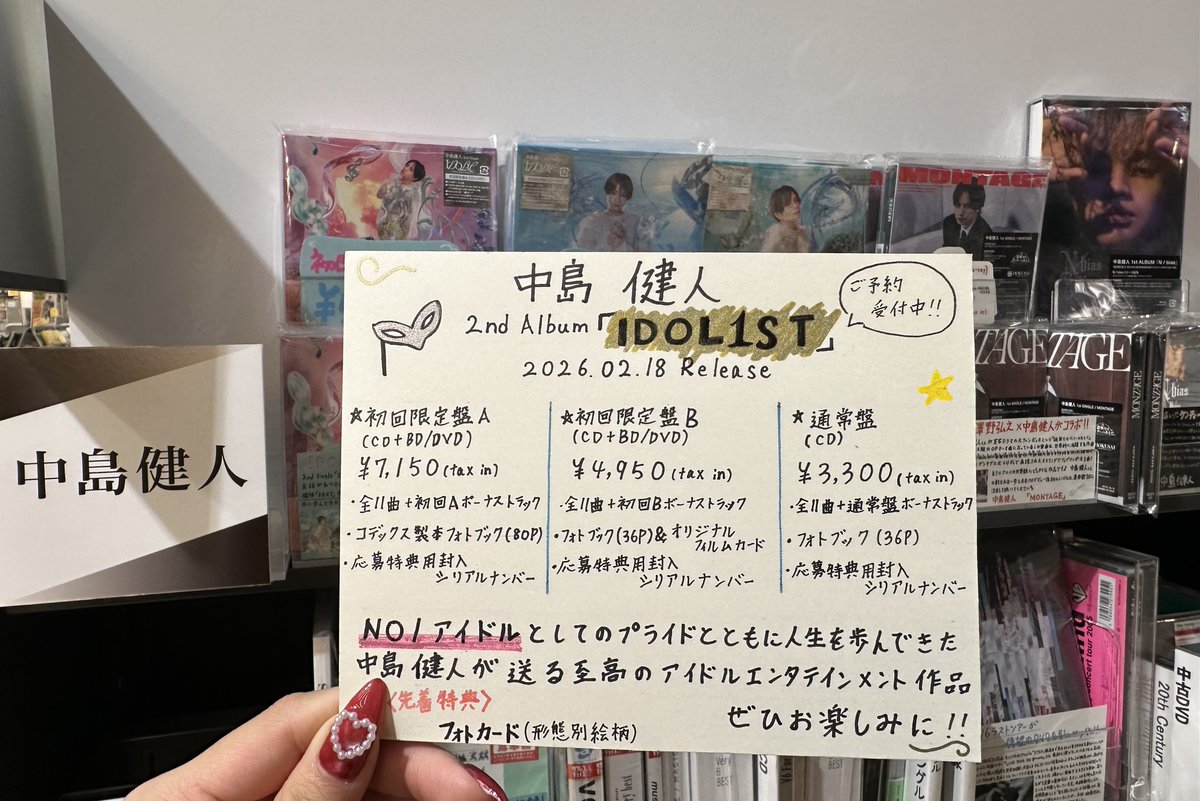 中島健人
中島 健人
2nd Album「IDOL1ST」
2026.02.18 Release
ご予約
受付中!!
☆初回限定盤A
(CD+BD/DVD)
¥7,150(tax in)
・全11曲+初回Aボーナストラック
・コデックス製本フォトブック(80P)
・応募特典用封入
シリアルナンバー
☆初回限定盤B
(CD+BD/DVD)
¥4,950(tax in)
・全11曲+初回Bボーナストラック
・フォトブック(36P)&オリジナル
フィルムカード
・応募特典用封入
シリアルナンバー
★通常盤
(CD)
¥3,300(tax in)
・全11曲+通常盤ボーナストラック
・フォトブック(36P)
・応募特典用封入
シリアルナンバー
NO1アイドルとしてのプライドとともに人生を歩んできた
中島健人が送る至高のアイドルエンタテインメント作品
〈先着特典〉
フォトカード(形態別絵柄)
ぜひお楽しみに!!
MONTAGE
中島健人 1st ALBUM「N / bias」
N/bias
TAGE
TAGE
MONTAGE
×中島健人がコラボ!!
中島健人 「MONTAGE」
concert tour 2015
20th Century